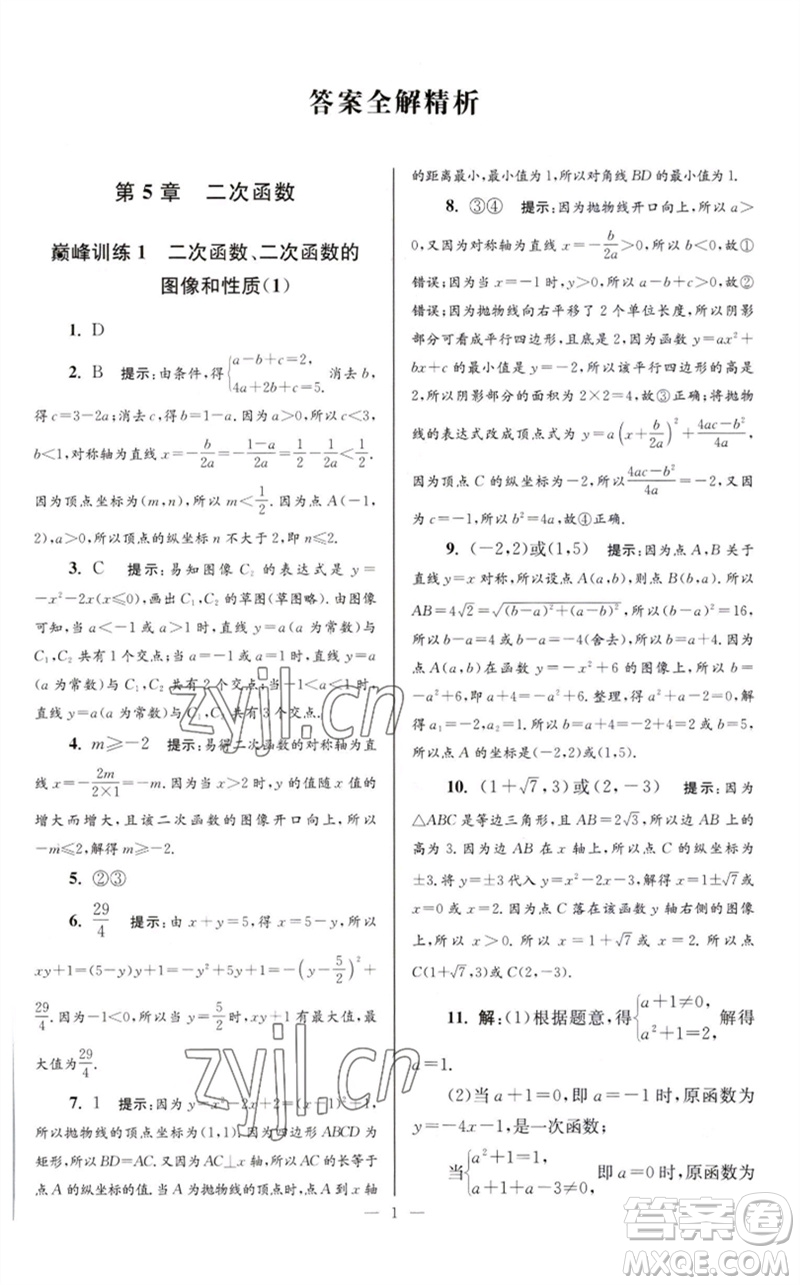 答案全解精析
第5章 二次函数
巅峰训练1 二次函数、二次函数的
图像和性质(1)
1. D
2. B 提示:由条件,得{a-b+c=2, 4a+2b+c=5. 消去b,
得c=3-2a;消去c,得b=1-a.因为a>0,所以c<3,
b<1,对称轴为直线x=-b/2a=-(1-a)/2a=1/2-1/2a<1/2.
因为顶点坐标为(m,n),所以m<1/2.因为点A(-1,
2),a>0,所以顶点的纵坐标n不大于2,即n≤2.
3. C 提示:易知图像C₂的表达式是y=
-x²-2x(x≤0),画出C₁,C₂的草图(草图略).由图像
可知,当a<-1或a>1时,直线y=a(a为常数)与
C₁,C₂共有1个交点;当a=-1或a=1时,直线y=
a(a为常数)与C₁,C₂共有2个交点;当-1<a<1时,
直线y=a(a为常数)与C₁,C₂共有3个交点.
4. m≥-2 提示:易得二次函数的对称轴为直
线x=-2m/(2×1)=-m.因为当x>2时,y的值随x的增
大而增大,且该二次函数的图像开口向上,所以
-m≤2,解得m≥-2.
5. ②③
6. 29/4 提示:由x+y=5,得x=5-y,所以
xy+1=(5-y)y+1=-y²+5y+1=-(y-5/2)²+
29/4.因为-1<0,所以当y=5/2时,xy+1有最大值,最
大值为29/4.
7. 1 提示:因为y=x²-2x+2=(x-1)²+1,
所以抛物线的顶点坐标为(1,1).因为四边形ABCD为
矩形,所以BD=AC.又因为AC⊥x轴,所以AC的长等于
点A的纵坐标.当点A为抛物线的顶点时,点A到x轴
的距离最小,最小值为1,所以对角线BD的最小值为1.
8. ③④ 提示:因为抛物线开口向上,所以a>
0,又因为对称轴为直线x=-b/2a>0,所以b<0,故①
错误;因为当x=1时,y>0,所以a+b+c>0,故②
错误;因为抛物线向右平移了2个单位长度,所以阴影
部分可看成平行四边形,且底是2,因为函数y=ax²+
bx+c的最小值是y=-2,所以该平行四边形的高是
2,所以阴影部分的面积为2×2=4,故③正确;将抛物
线的表达式改成顶点式为y=a(x+b/2a)²+(4ac-b²)/4a,
因为顶点C的纵坐标为-2,所以(4ac-b²)/4a=-2,又因
为c=-1,所以b²=4a,故④正确.
9. (-2,2)或(1,5) 提示:因为点A,B关于
直线y=x对称,所以设点A(a,b),则点B(b,a).所以
AB=4√2=√((b-a)²+(a-b)²),所以(b-a)²=16,
所以b-a=4或b-a=-4(舍去),所以b=a+4.因为
点A在函数y=-x²+6(x≤0)的图像上,所以b=
-a²+6,即a+4=-a²+6,所以a²+a-2=0.解
得a₁=-2,a₂=1.所以b=a+4=-2+4=2或b=5,
所以点A的坐标是(-2,2)或(1,5).
10. (1+√7,3)或(2,-3) 提示:因为
△ABC是等边三角形,且AB=2√3,所以AB边上的
高为3.因为点C在二次函数的图像上,所以点C的纵坐标为
±3.将y=±3代入y=x²-2x-3,解得x=1±√7或
x=0或x=2.因为点C落在该函数y轴右侧的图像
上,所以x>0.所以x=1+√7或x=2.所以点
C(1+√7,3)或(2,-3).
11. 解:(1)根据题意,得{a+1≠0, a²+1=2, 解得
a=1.
(2)当a+1=0,即a=-1时,原函数为
y=-4x-1,是一次函数;
当{a²+1=1, a+1+a-3≠0, 即a=0时,原函数为
— 1 —
zyjl.cn
zyjl.cn
答案卷
MXQE.COM